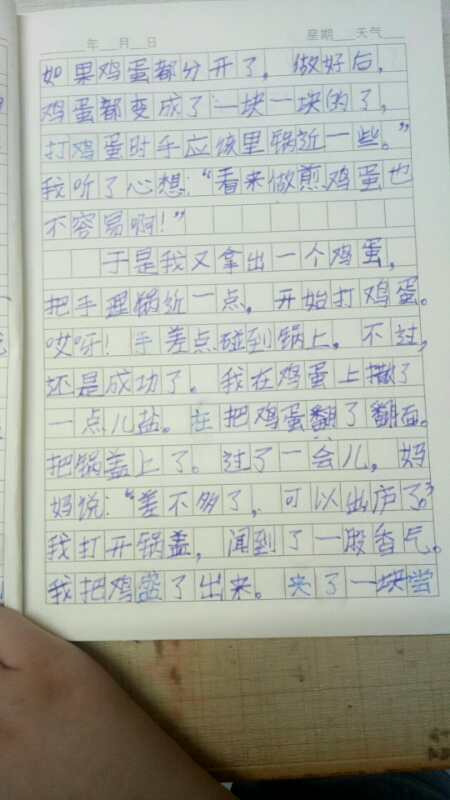 年 月 日 星期 天气
如果鸡蛋都分开了，做好后，
鸡蛋都变成了一块一块的了，
打鸡蛋时手应该里锅近一些。”
我听了心想：“看来做煎鸡蛋也
不容易啊！”
于是我又拿出一个鸡蛋，
把手理锅近一点，开始打鸡蛋。
哎呀！手差点碰到锅上。不过，
还是成功了。我在鸡蛋上撒了
一点儿盐。在把鸡蛋翻了翻面。
把锅盖上了。过了一会儿，妈
妈说：“差不多了，可以出庐了。”
我打开锅盖，闻到了一股香气。
我把鸡盛了出来。夹了一块尝